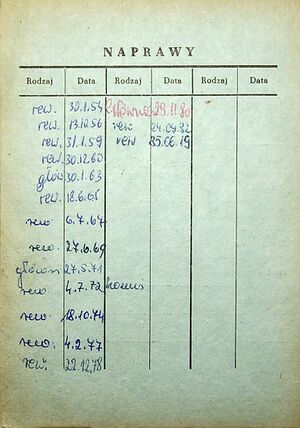 NAPRAWY
Rodzaj Data Rodzaj Data Rodzaj Data
rew. 30.1.54 Główna 29.11.80
rew. 13.12.56 rew 24.04.82
rew. 31.1.59 rew 25.06.19
rew. 30.12.60
głów. 30.1.63
rew. 18.6.65
rew 6.7.67
rew. 27.6.69
główn 27.5.71
rew 4.7.72
rew. 18.10.74
rew. 4.2.77
rew. 22.12.78